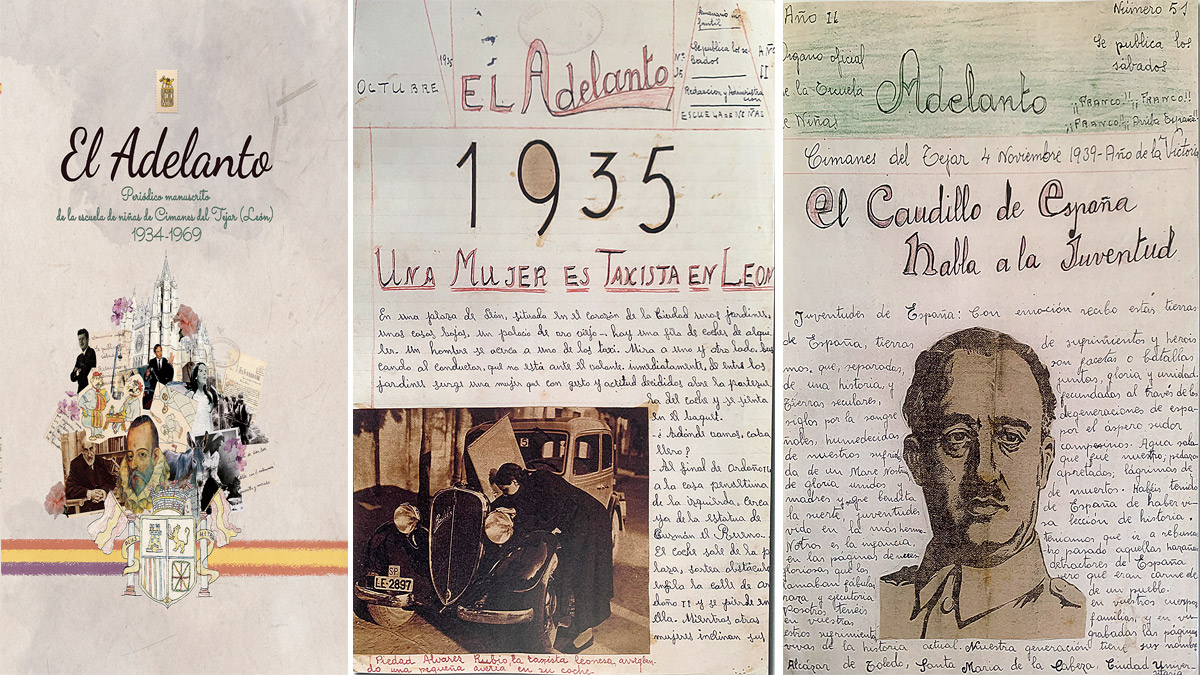 El Adelanto
Periódico manuscrito
de la escuela de niñas de Cimanes del Tejar (León)
1934-1969
OCTUBRE
1935
EL Adelanto
Semanario in-
fantil
Se publica los sá-
bados
Redacción y Administra
ción
ESCUELA DE NIÑAS
Nº
AÑO
II
1935
UNA MUJER ES TAXISTA EN LEON
En una plaza de León, situada en el corazón de la Ciudad unos jardines,
unas casas bajas, un palacio de oro viejo-, hay una fila de coches de alqui
ler. Un hombre se acerca a uno de los taxi. Mira a uno y otro lado, bus
cando al conductor, que no está ante el volante. inmediatamente, de entre los
jardines surge una mujer que con gesto y actitud decididos abre la portezue
la del coche y se sienta
en el baquet.
-¿Adónde vamos, caba
llero?
- Al final de Ordoño II
a la casa penúltima
de la izquierda. Cerca
ya de la estatua de
Guzmán el Bueno.
El coche sale de la p
laza, sortea obstáculo
enfila la calle de Or
doño II y se pierde en
ella. Mientras otras
mujeres inclinan sus
SP
LE-2897
Piedad Alvares Rubio, la taxista leonesa arreglan
do una pequeña avería en su coche
Año II
Número 51
Órgano oficial
de la Escuela
de Niñas
Adelanto
Se publica los
sábados
¡¡FRANCO!! ¡FRANCO!!
¡¡FRANCO!! ¡Arriba España!
Cimanes del Tejar 4 Noviembre 1939-Año de la Victoria
El Caudillo de España
Habla a la Juventud
Juventudes de España: Con emoción recibo estas tierras
de España, tierras de sufrimientos y herois
mos, que, separadas, son facetas o batallas
de una historia y juntas, gloria y unidad.
Tierras seculares, fecundadas al través de los
siglos por la sangre degeneraciones de espa
ñoles, humedecidas por el áspero sudor
de nuestros campesinos. Agua sala
da de un Mare Nos que fué nuestro; pedazos
de gloria unidos y apretados; lágrimas de
madres y de muertos. Habéis tenido
la suerte, juventudes de España de haber vi
vido en la más sa lección de historia.
en las páginas no pasado aquellas hazañas
gloriosas que los detractores de España
llamaban fábula, pero que eran carne de
y ejecutoria de un pueblo.
Vosotros tenéis en vuestros cuerpos
en vuestras familias, y en
grabadas las páginas
vivas de la historia actual. Nuestra generación tiene sus nombre
Alcázar de Toledo, Santa María de la Cabeza, Ciudad Univer-
sitaria